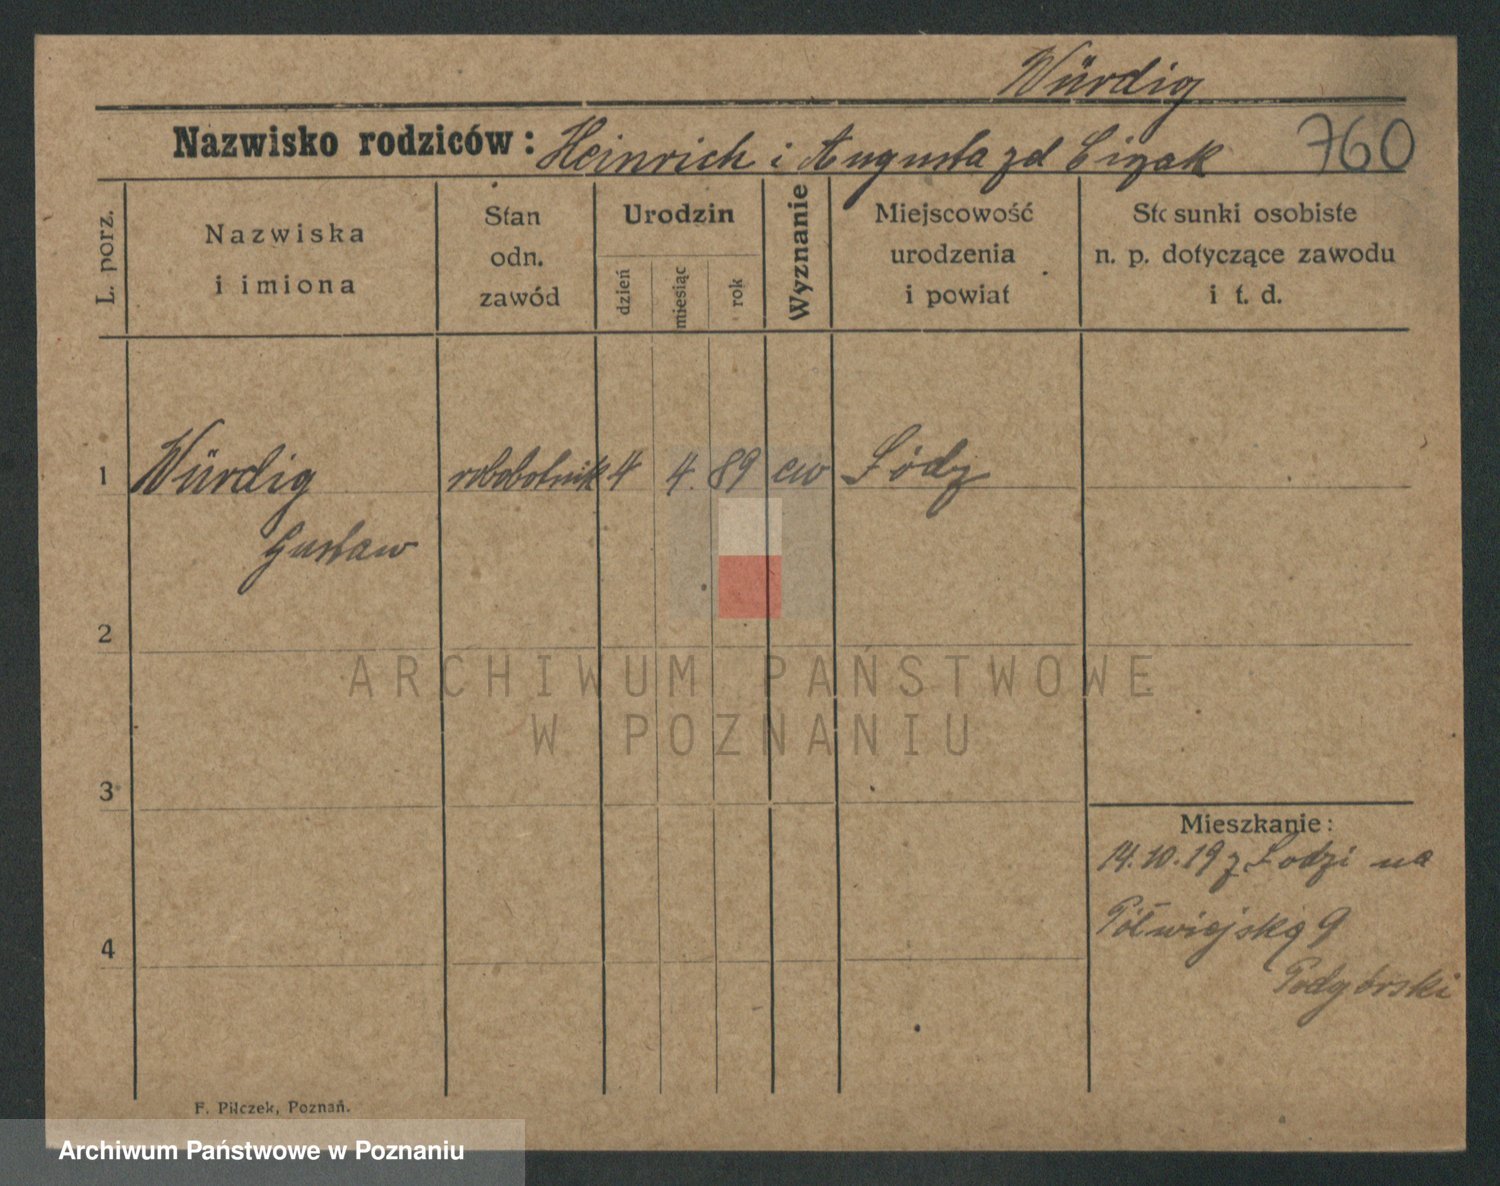 Würdig
Nazwisko rodziców: Heinrich i Augusta zd Cizak 760
L. porz.
Nazwiska
i imiona
Stan
odn.
zawód
Urodzin
dzień
miesiąc
rok
Wyznanie
Miejscowość
urodzenia
i powiat
Stosunki osobiste
n. p. dotyczące zawodu
i t. d.
1 Würdig robobotnik 4 4. 89 ew Łódz
Gustaw
2
3
4
ARCHIWUM PAŃSTWOWE
W POZNANIU
Mieszkanie:
14.10.19 z Łodzi na
Półwiejską 9
Podgórski
F. Pilczek, Poznań.
Archiwum Państwowe w Poznaniu